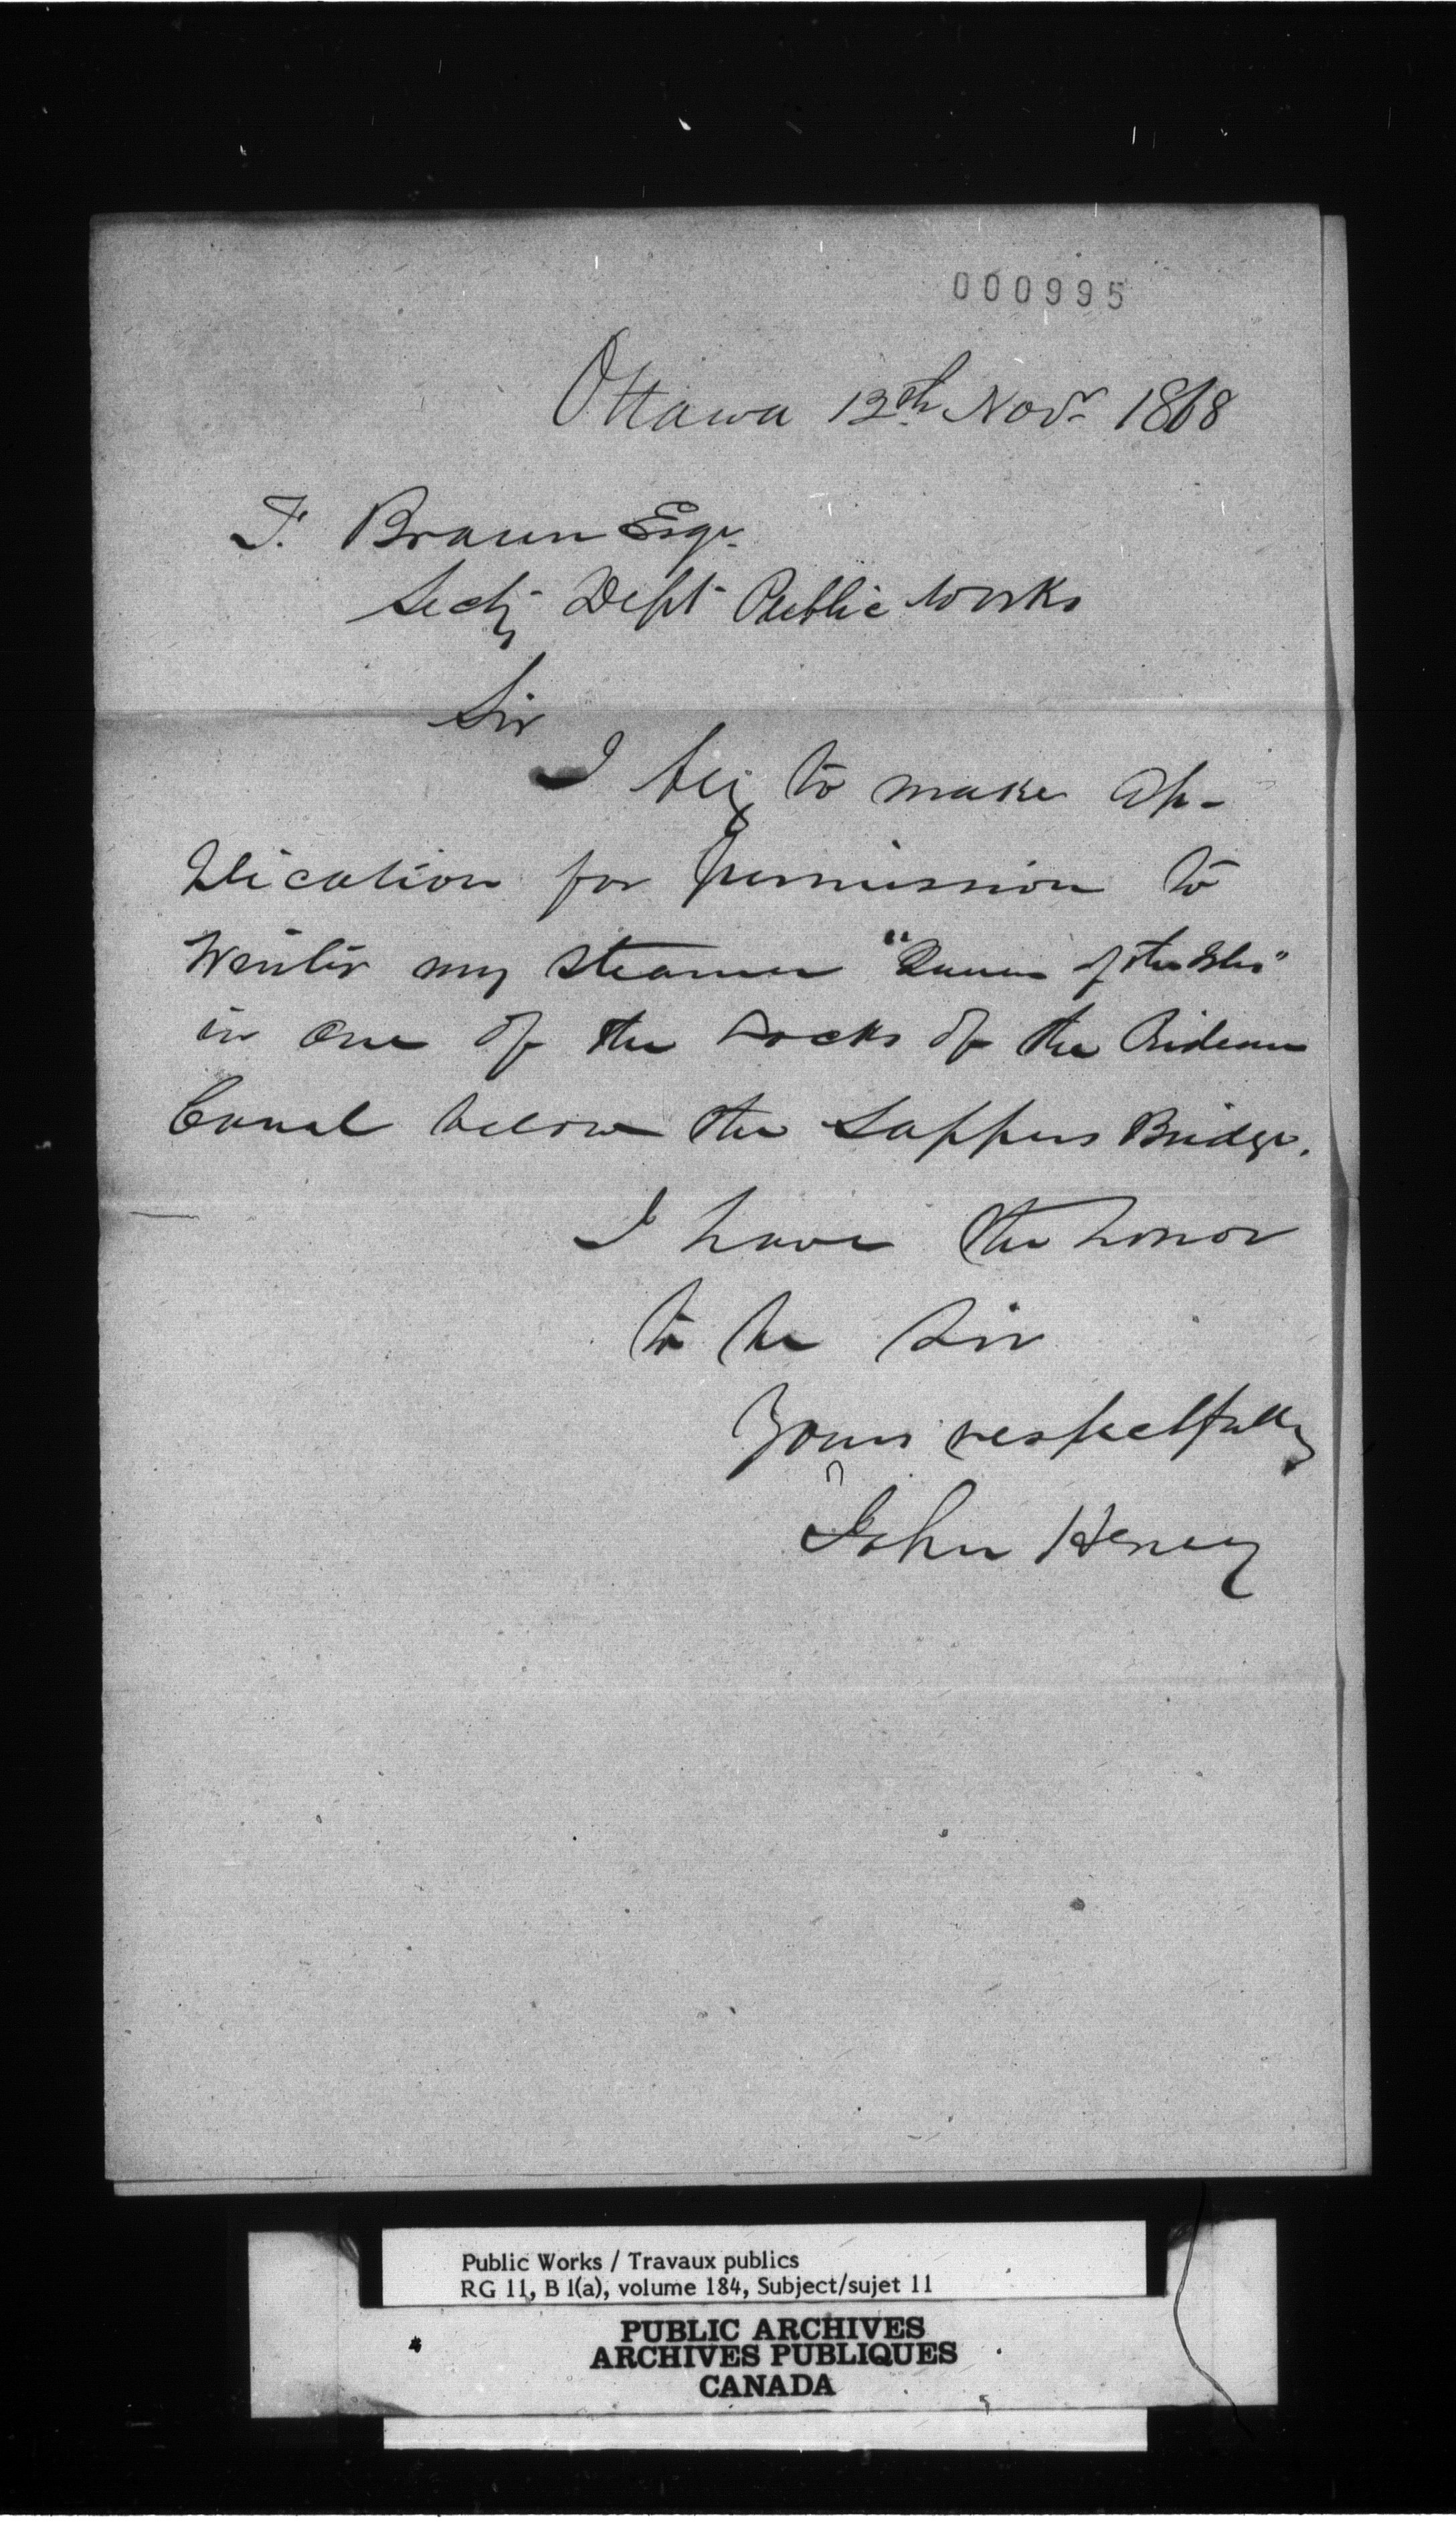 000995
Ottawa 13th Novr 1868
F. Braun Esqr.
Secty Dept Public Works
Sir
I beg to make ap-
plication for permission to
Winter my steamer "Queen of the Isles"
in one of the Locks of the Rideau
Canal below the Sappers Bridge.
I have the honor
to be Sir
Yours respectfully
John Heney
Public Works / Travaux publics
RG 11, B 1(a), volume 184, Subject/sujet 11
PUBLIC ARCHIVES
ARCHIVES PUBLIQUES
CANADA